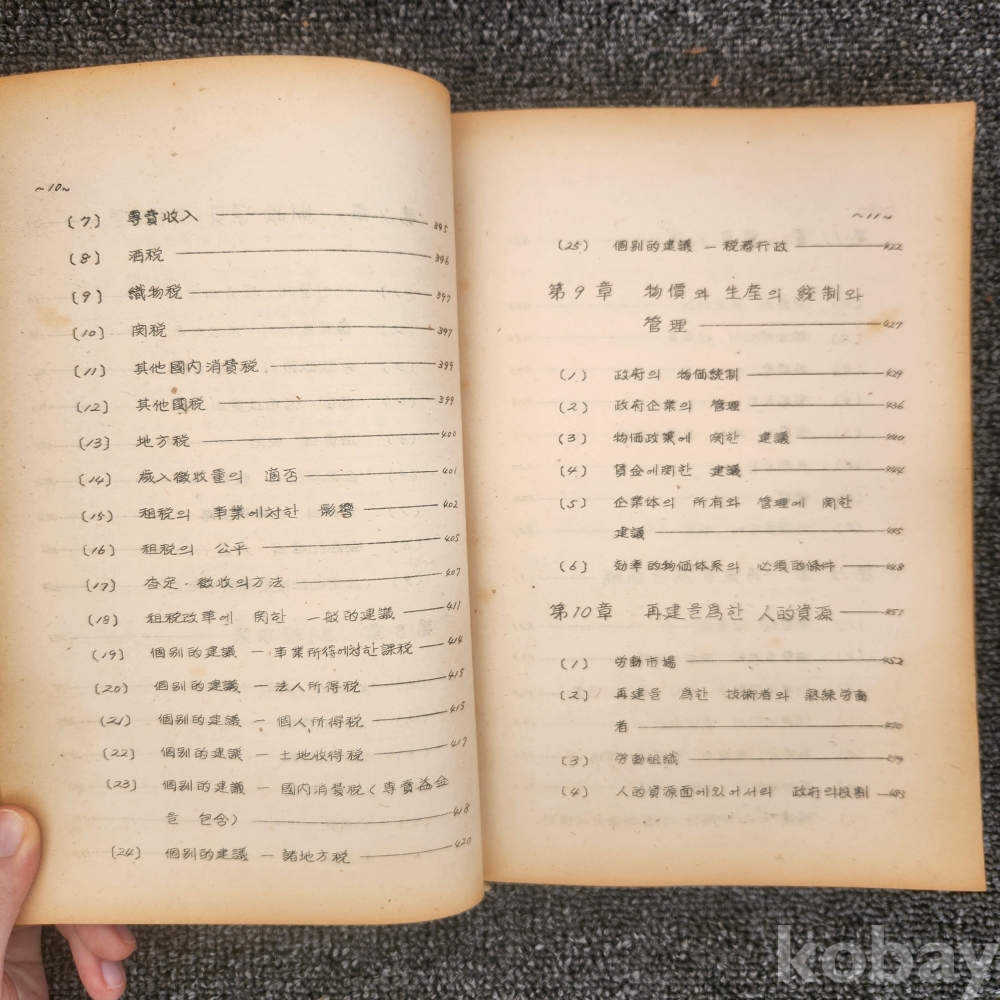 ~10~
(7) 專賣收入 395
(8) 酒税 396
(9) 織物税 397
(10) 関税 397
(11) 其他國内消費税 399
(12) 其他國税 399
(13) 地方税 400
(14) 歲入徵收量의 適否 401
(15) 租税의 事業에対한 影響 402
(16) 租税의 公平 405
(17) 査定·徵收의方法 407
(18) 租税改革에 関한 一般的建議 411
(19) 個別的建議 — 事業所得에対한課税 414
(20) 個別的建議 — 法人所得税 415
(21) 個別的建議 — 個人所得税 415
(22) 個別的建議 — 土地收得税 417
(23) 個別的建議 — 國内消費税(専賣益金
을 包含) 418
(24) 個別的建議 — 諸地方税 420
~11~
(25) 個別的建議 — 税務行政 422
第9章 物價와 生産의 統制와
管理 427
(1) 政府의 物価統制 429
(2) 政府企業의 管理 436
(3) 物価政策에 関한 建議 440
(4) 賃金에関한 建議 444
(5) 企業体의 所有와 管理에 関한
建議
(6) 効率的物価体系의 必須的條件 448
第10章 再建을爲한 人的資源 451
(1) 労動市場 452
(2) 再建을 爲한 技術者와 熟練労動
者
(3) 労動組織
(4) 人的資源面에있어서의 政府의役割
kobay